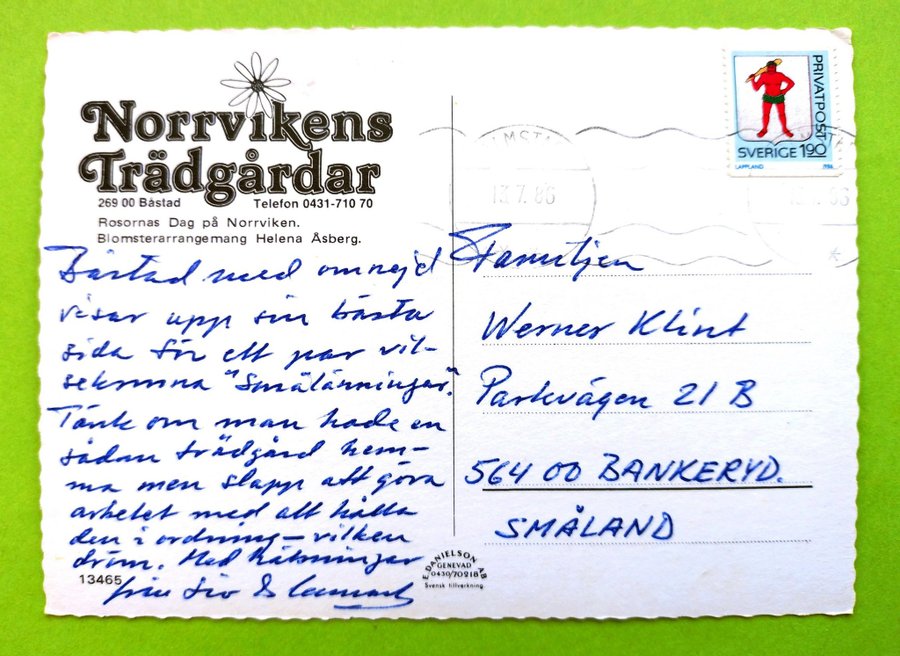 Norrvikens
Trädgårdar
269 00 Båstad Telefon 0431-710 70
Rosornas Dag på Norrviken.
Blomsterarrangemang Helena Åsberg.
Båstad med omnejd
visar upp sin bästa
sida för ett par vil-
sekomna "Smålänningar".
Tänk om man hade en
sådan trädgård hem-
ma men slapp att göra
arbetet med att hålla
den i ordning – vilken
dröm. Med hälsningar
från Siv & Lennart
13465
E. DANIELSON AB
GENEVAD
0430/70218
Svensk tillverkning.
PRIVATPOST
SVERIGE 190
LAPPLAND 1986
13.7.86
Familjen
Werner Klint
Parkvägen 21 B
564 00 BANKERYD.
SMÅLAND